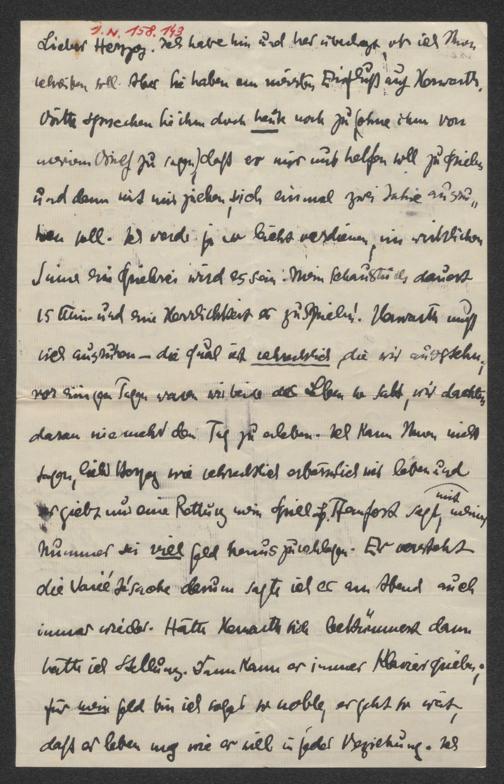 J.N. 158.143
Lieber Herzog. Ich habe hin und her überlegt, ob ich Ihnen
schreiben soll. Aber Sie haben am meisten Einfluß auf Herwarth.
Bitte sprechen Sie ihm doch heute noch zu (ohne ihm von
meinem Brief zu sagen) daß er mir mit helfen soll zu spielen
und dann mit mir ziehen, sich einmal zwei Jahre auszu-
ruhen soll. Ich werde ja so leicht verdienen, im wirklichen
Sinne ein Spielerei wird es sein. Mein Schauspiel dauert
15 Minu und eine Herrlichkeit es zu spielen! Herwarth muß
viel ausruhen – die Qual ist schrecklich die wir ausstehn,
vor einigen Tagen waren wir beide das Leben so satt, wir dachten
daran nie mehr den Tag zu erleben. Ich kann Ihnen nicht
sagen, lieber Herzog wie schrecklich erbärmlich wir leben und
er giebt nur eine Rettung mein Spiel. sagt, mit meiner
Nummer sei viel Geld herauszuschlagen. Er versteht
die Varieté sache darum sagte ich es am Abend auch
immer wieder. Hätte Herwarth sich bekümmert dann
hätte ich Stellung. Dann kann er immer Klavier spielen,
für mein Geld bin ich sogar so nobel, er geht so weit,
daß er leben mag wie er will in jeder Beziehung. Ich